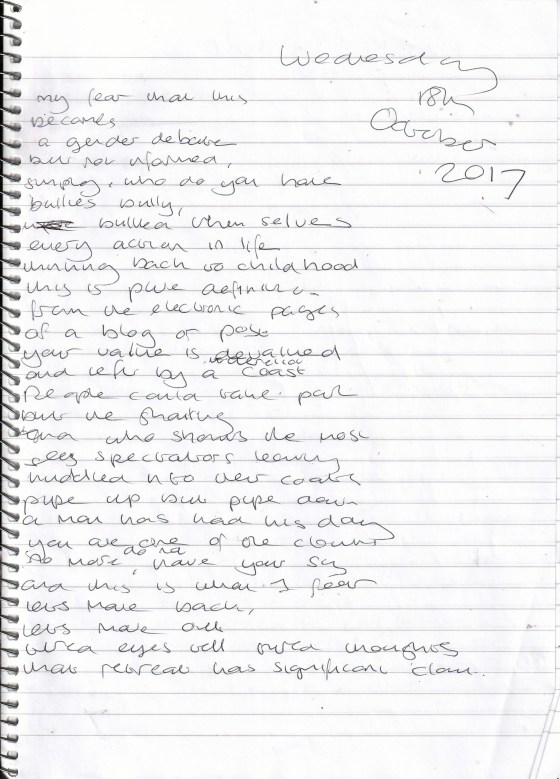 Wednesday
18th
October
2017
my fear that this
becomes
a gender debate
but not informed,
simply, who do you have
bullies bully,
bullied themselves
every action in life
running back to childhood
this is pure definition
from the electronic pages
of a blog or post
your value is devalued
and left by a coast
People could take part
but the fighting
and who shouts the most
sees spectators leaving
huddled into their coats
pipe up but pipe down
a man has had his day
you are one of the
No more, do na have your say
and this is what I fear
lets move back,
lets move out
eyes well thoughts
that retreat has significant clout.